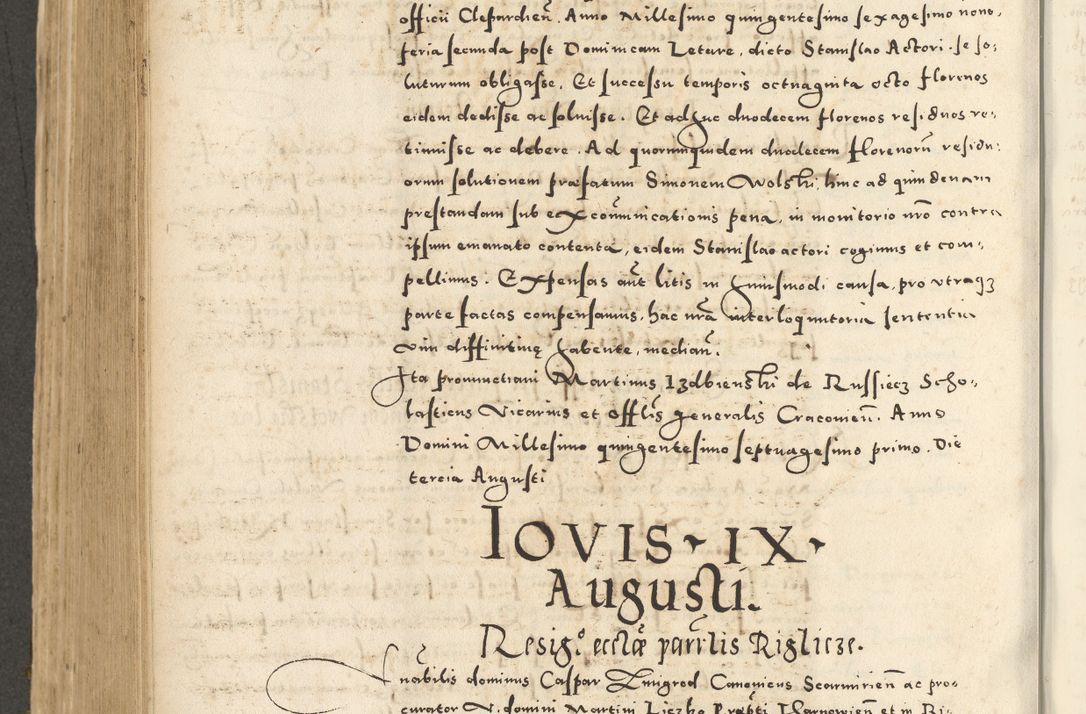 officii Clepardien̄. Anno Millesimo quingentesimo sexagesimo nono,
feria secunda post Dominicam Letare, dicto Stanislao Actori. se so,
luturum obligasse. Et successu temporis octuaginta octo florenos
eidem dedisse ac soluisse. Et adhuc duodecem florenos residuos re,
tinuisse ac debere. Ad quorumquidem duodecem florenorū residu:
orum solutionem præfatum Simonem Wolski, hinc ad quindenam
prestandam sub excōmunicationis pena, in monitorio nrō contra
ipsum emanato contenta, eidem Stanislao actori cogimus et com,
pellimus. Expensas aūt litis in huiusmodi causa, pro utraqȝ
parte factas compensamus, hac nrā interloqutoria sententia
vim diffinitiuę habente, median̄.
Ita pronunctiaui Martinus Izdbienski de Russiecz Scho,
lasticus Vicarius et offlis generalis Cracouien̄. Anno
Domini Millesimo quingentesimo septuagesimo primo. Die
tercia Augusti
IOVIS · IX ·
Augusti.
Resig.º ecclæ parrlis Riglicze.
nobilis dominus Caspar Zmigrod Canonicus Scarmirien̄ ac pro,
curator V. domini Martini Liczko Præpti Tharnowien̄ et in Ri,